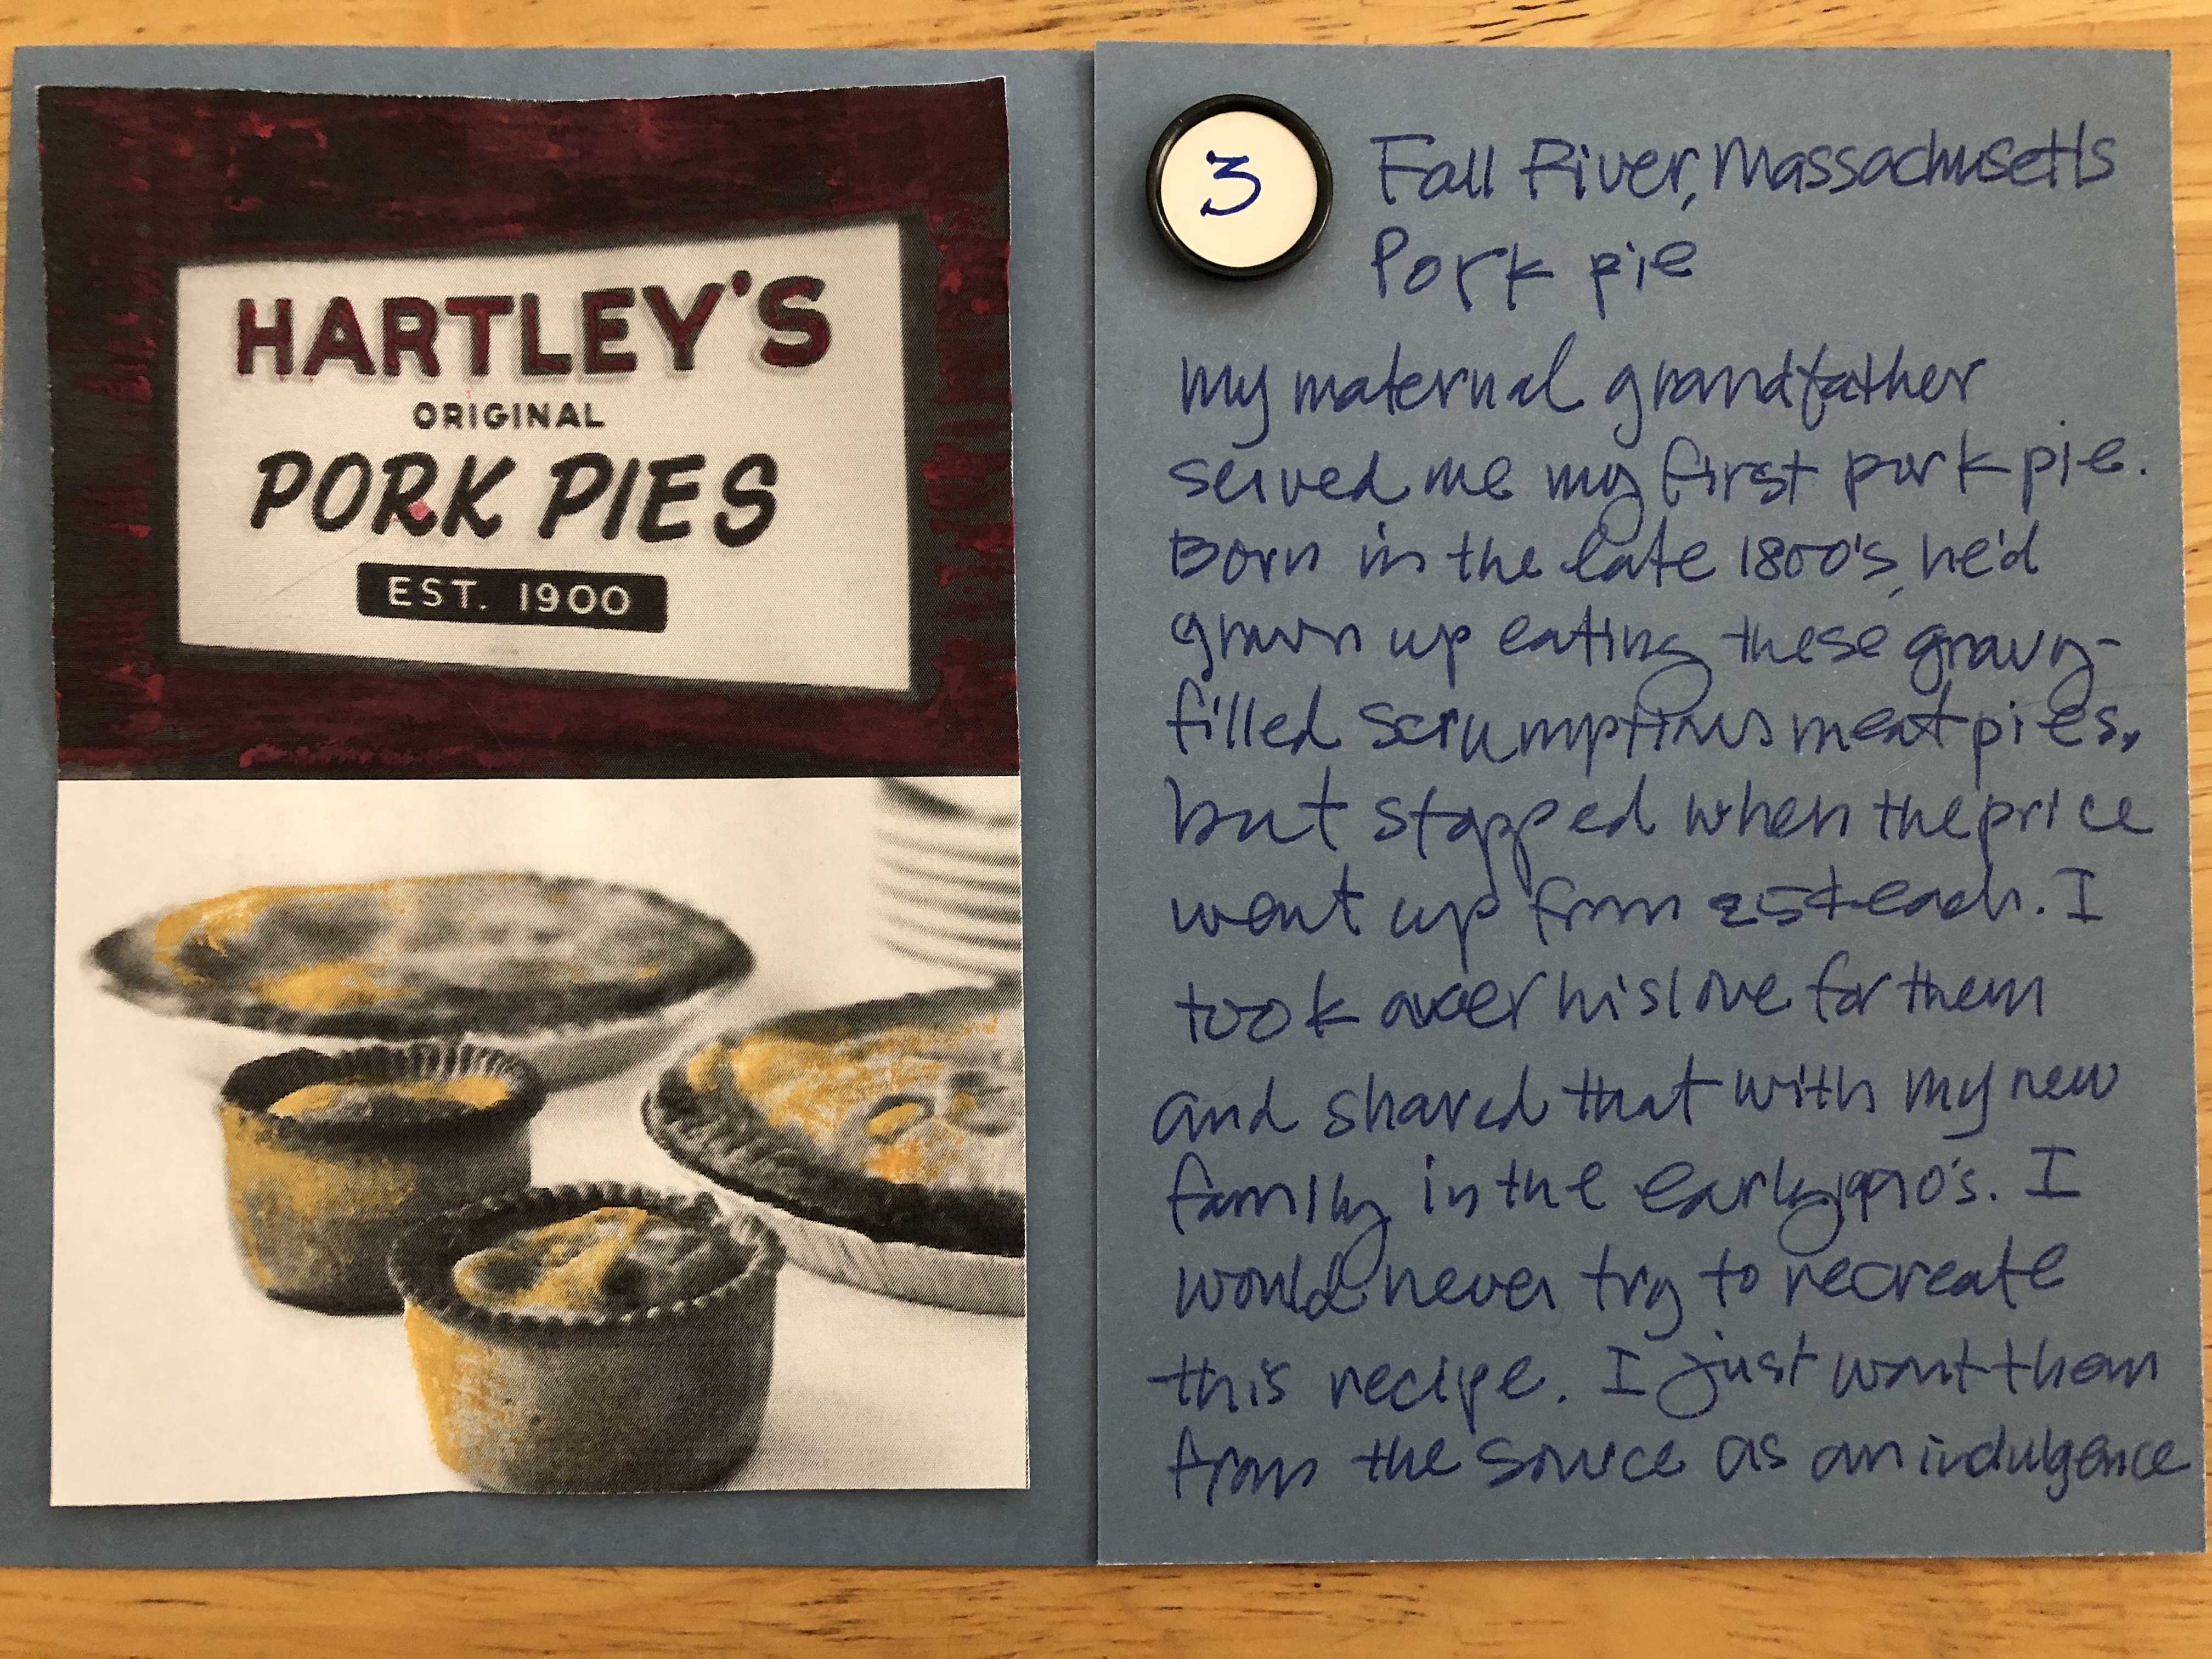 HARTLEY'S
ORIGINAL
PORK PIES
EST. 1900
3
Fall River, Massachusetts
Pork pie
My maternal grandfather
served me my first pork pie.
Born in the late 1800's, he'd
grown up eating these gravy-
filled scrumptious meat pies,
but stopped when the price
went up from 25¢ each. I
took over his love for them
and shared that with my new
family in the early 1990's. I
would never try to recreate
this recipe. I just want them
from the source as an indulgence